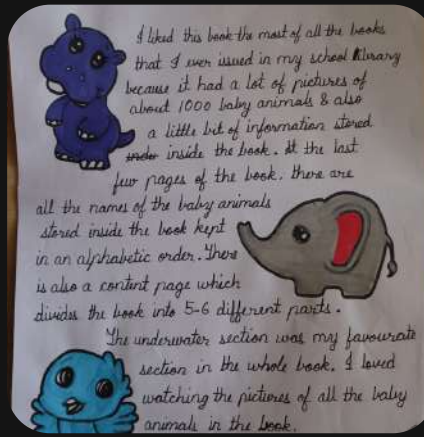 I liked this book the most of all the books
that I ever issued in my school library
because it had a lot of pictures of
about 1000 baby animals & also
a little bit of information stored
inside the book. At the last
few pages of the book, there are
all the names of the baby animals
stored inside the book kept
in an alphabetic order. There
is also a content page which
divides the book into 5-6 different parts.
The underwater section was my favourate
section in the whole book. I loved
watching the pictures of all the baby
animals in the book.